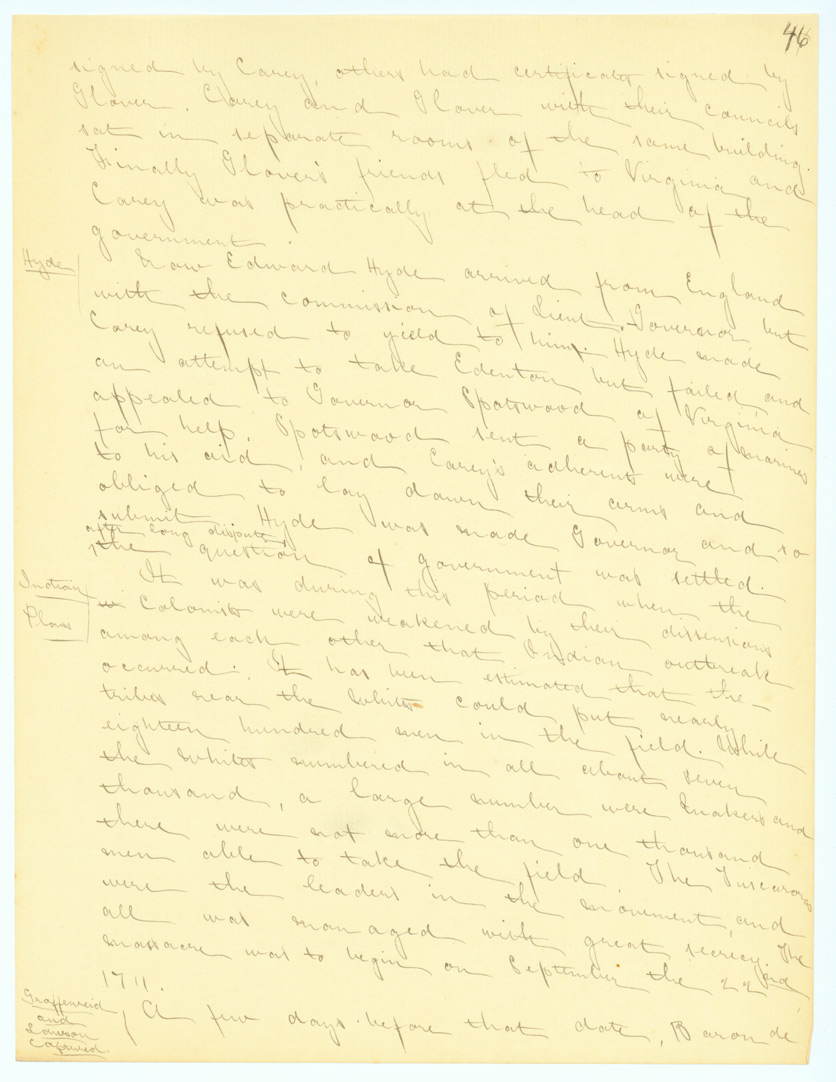 46
signed by Carey, others had certificates signed by
Glover. Carey and Glover with their councils
sat in separate rooms of the same building.
Finally Glover's friends fled to Virginia and
Carey was practically at the head of the
government.
Hyde
Edward Hyde arrived from England
with the commission of Lieut. Governor but
Carey refused to yield to him. Hyde made
an attempt to take Edenton but failed and
appealed to Governor Spotswood of Virginia
for help. Spotswood sent a party of marines
to his aid, and Carey's adherents were
obliged to lay down their arms and
submit. Hyde was made Governor and so
after long dispute
the question of government was settled.
Indian
Plans
It was during this period when the
Colonists were weakened by their dissensions
among each other that Indian outbreak
occurred. It has been estimated that the
tribes near the whites could put nearly
eighteen hundred men in the field. While
the whites numbered in all about seven
thousand, a large number were Quakers and
there were not more than one thousand
men able to take the field. The Tuscaroras
were the leaders in the movement, and
all was managed with great secrecy. The
massacre was to begin on September the 22nd,
1711.
Graffenreid
and
Lawson
Captured.
A few days before that date, Baron de